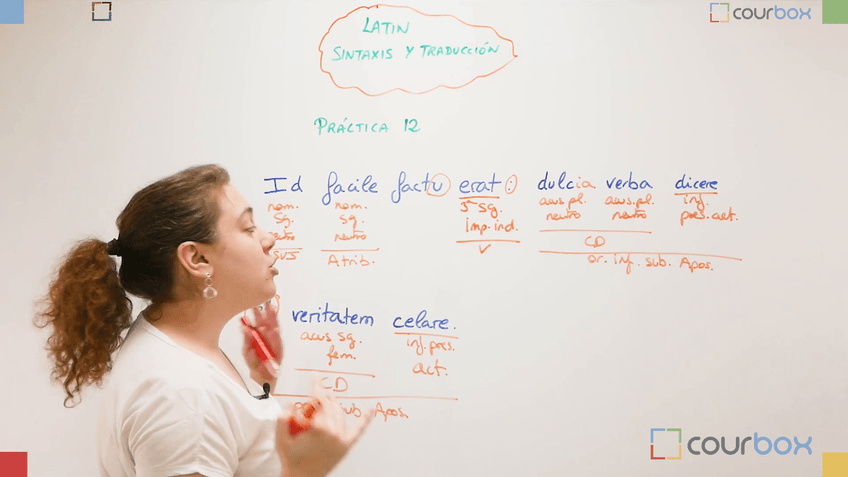 courbox
LATIN
SINTAXIS Y TRADUCCIÓN
PRÁCTICA 12
Id facile factu erat: dulcia verba dicere
nom. nom. 3ª sg. acus.pl. acus.pl. inf.
sg. sg. imp.ind. neutro neutro pres.act.
neutro neutro
SUJ Atrib. V CD
or. inf. sub. Apos.
veritatem celare.
acus sg. inf.pres.
fem. act.
CD
sub. Apos.
courbox